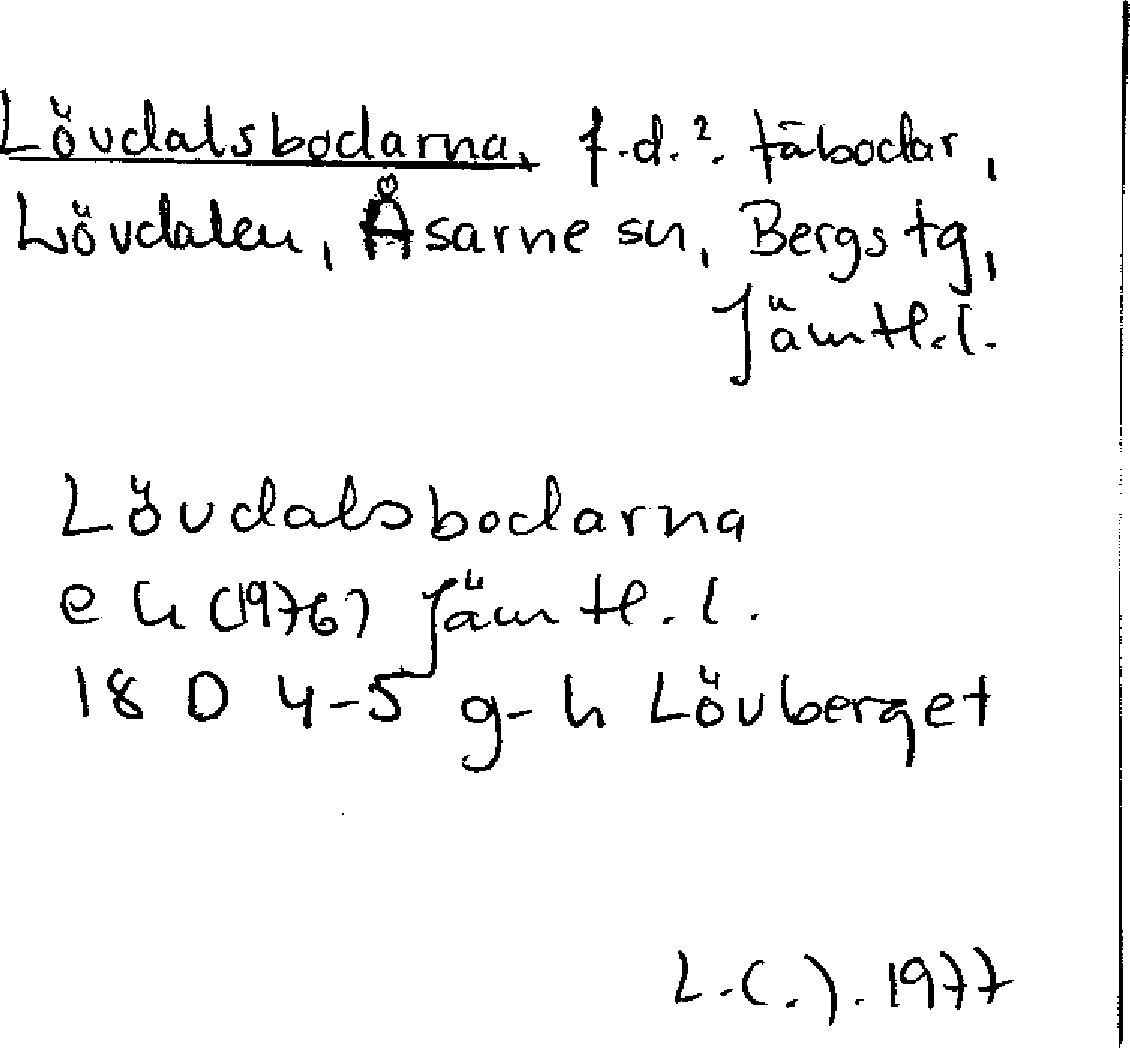 Lövdalsbodarna, f.d.? fäbodar,
Lövdalen, Åsarne sn, Bergs tg,
Jämtl.l.
Lövdalsbodarna
ek (1976) Jämtl.l.
18 D 4-5 g-h Lövberget
1977